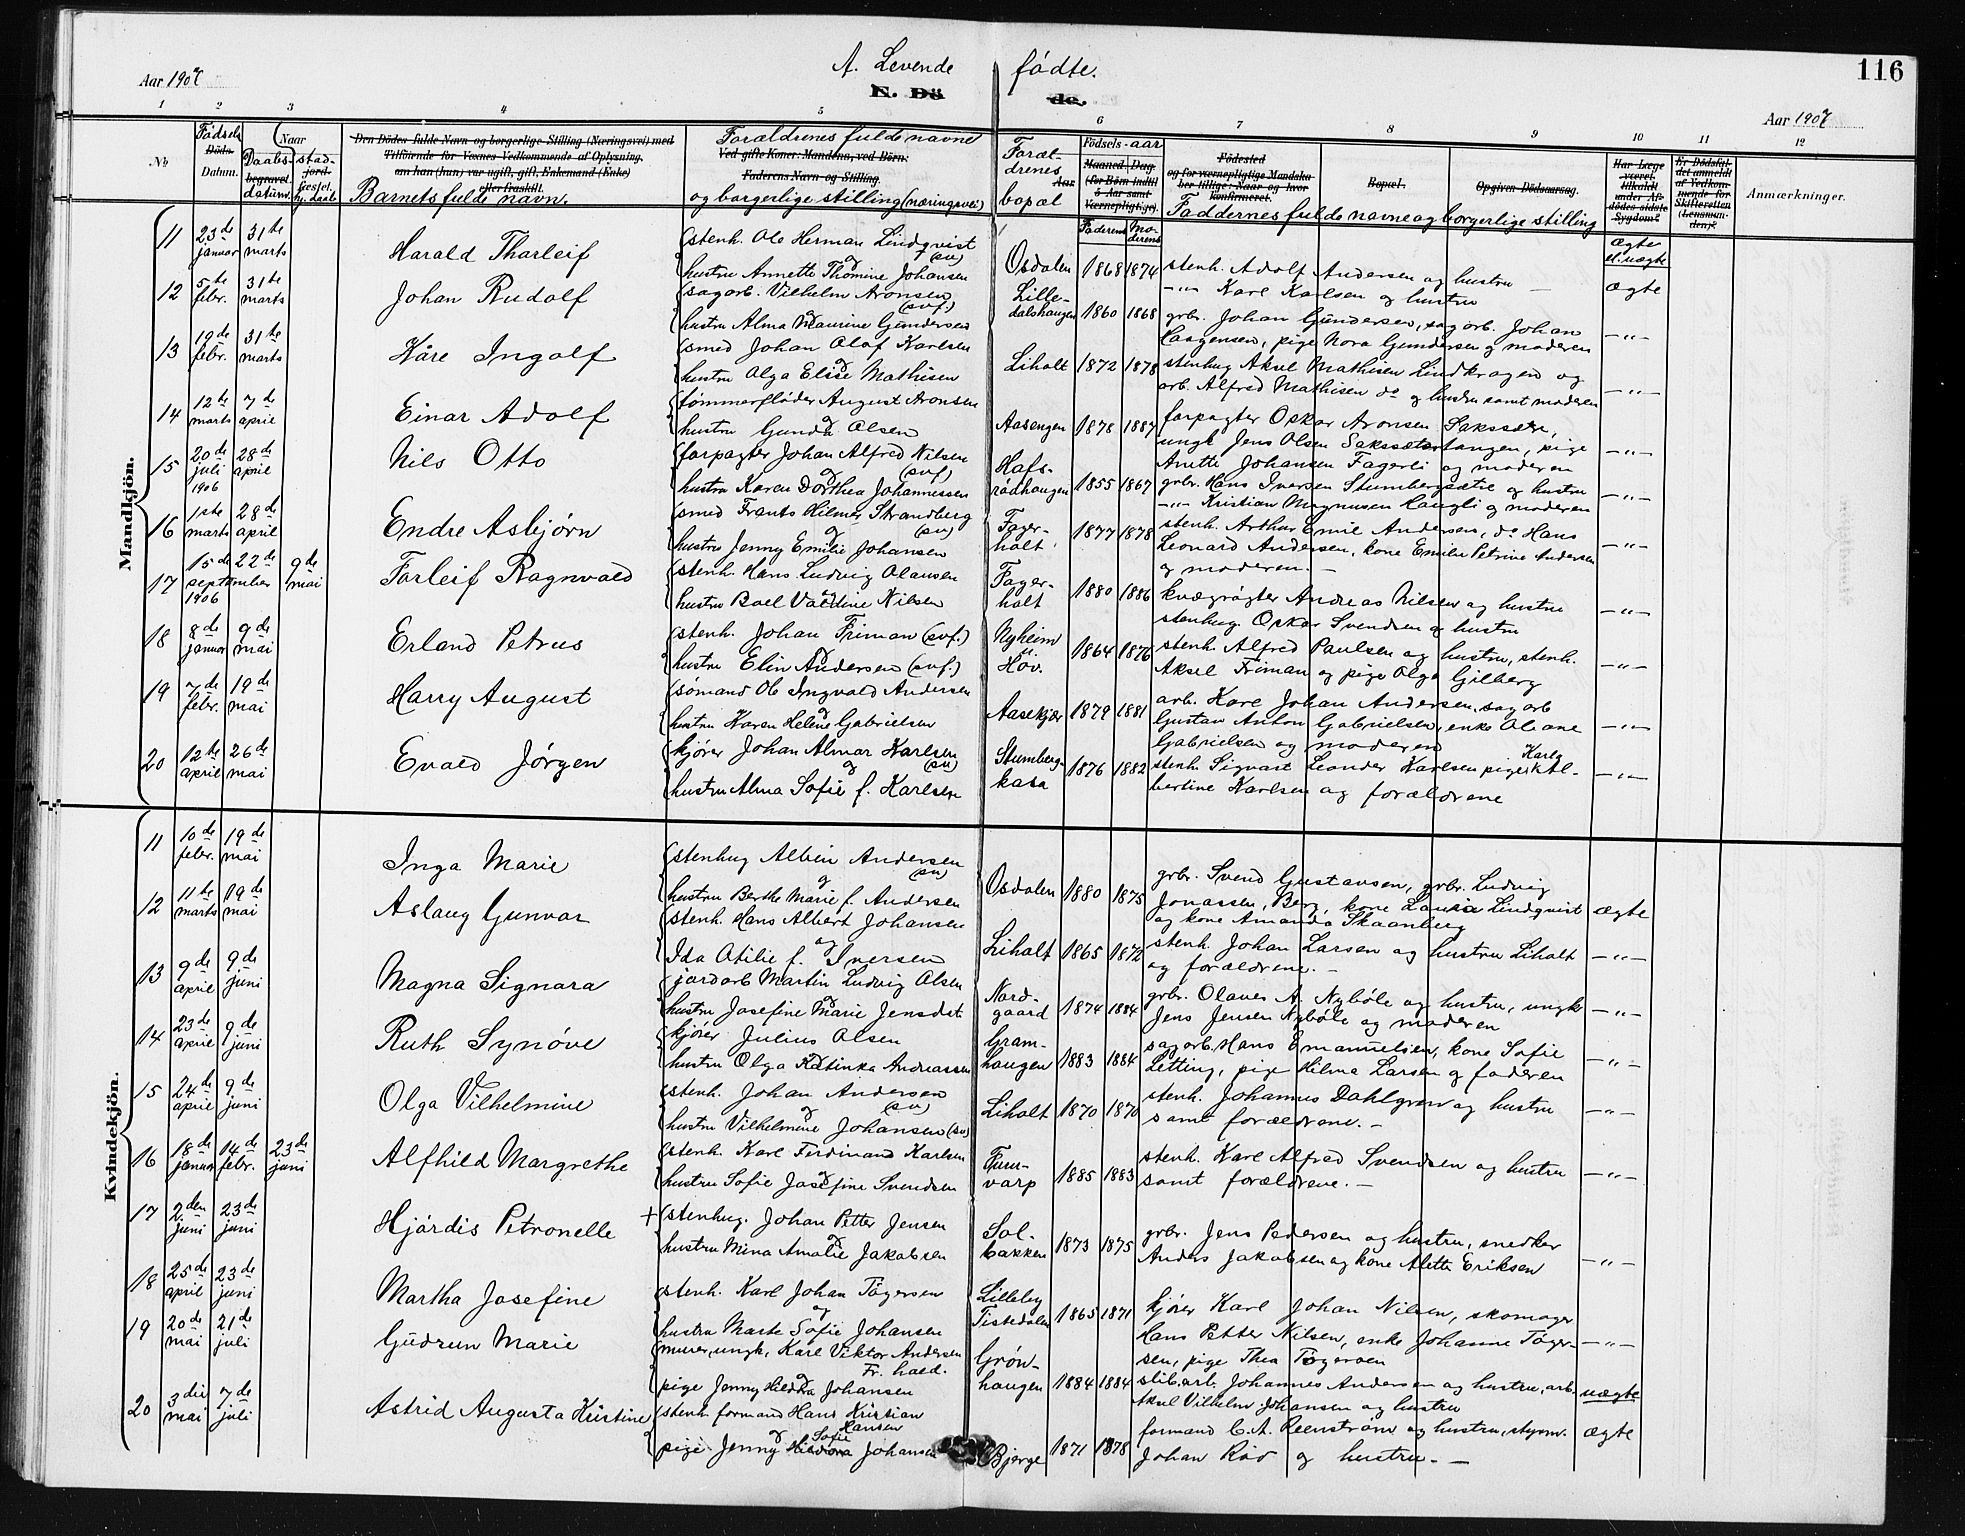 A. Levende fødte.
116
Aar 1907
Aar 1907
1 2 3 4 5 6 7 8 9 10 11 12
No.
Fødsels Datum.
Naar
Daabs-datum.
Barnets fulde navn.
Forældrenes fulde navne og borgerlige stilling (næringsvei)
Foræl-drenes bopæl
Fødsels-aar
Faderens Moderens
Faddernes fulde navne og borgerlige stilling
ægte el. uægte
Anmærkninger.
Mandkjön.
11 23de januar 31te marts Harald Tharleif
stenh. Ole Herman Lindqvist (sv)
og
hustru Annette Thomine Johansen
Osdalen 1868 1874
stenh. Adolf Andersen og hustru
—"— Karl Karlsen og hustru
ægte
12 5te febr. 31te marts Johan Rudolf
sagarb. Vilhelm Aronsen (svf.)
hustru Alma Maurine Gundersen
Lille-dalshaugen 1860 1868
grbr. Johan Gundersen, sagarb. Johan
pige Nora Gundersen og moderen
—"—
13 19de febr. 31te marts Kåre Ingolf
smed Johan Olaf Karlsen
og
hustru Olga Elise Mathisen
Liholt 1872 1878
stenhug Aksel Mathisen Lindkragen og
arb. Alfred Mathisen do og hustru samt moderen
—"—
14 12te marts 7de april Einar Adolf
tømmerfløder August Aronsen
hustru Gunda Olsen
Aasengen 1878 1887
forpagter Oskar Aronsen Sakssæter,
ungk. Jens Olsen Sakssætertangen, pige
Anette Johansen Fagerli og moderen
—"—
15 20de juli 1906 28de april Nils Otto
forpagter Johan Alfred Nilsen (svf)
og
hustru Karen Dorthea Johannessen
Hafs-rødhaugen 1855 1867
grbr. Hans Iversen Stumbergsætre og hustru
—"— Kristian Magnusen Haugli og moderen
—"—
16 1ste marts 28de april Endre Asbjørn
smed Frants Hilmer Strandberg (sv)
og
hustru Jenny Emilie Johansen
Fager-holt 1877 1878
stenh. Arthur Emil Andersen, do Hans
Leonard Andersen, kone Emilie Petrine Andersen
og moderen.—
—"—
17 15de september 1906 22de 9de mai Torleif Ragnvald
stenh. Hans Ludvig Olausen
og
hustru Boel Valdine Nilsen
Fager-holt 1880 1886
kvægrøgter Andreas Nilsen og hustru
stenhug. Oskar Svendsen og hustru
—"—
18 8de januar 9de mai Erland Petrus
stenh. Johan Friman (svf.)
og
hustru Elin Andersen (svf.)
Nyheim u. Hov. 1864 1876
stenh. Alfred Paulsen og hustru, stenh.
Aksel Friman og pige Olga Gilberg
—"—
19 7de febr. 19de mai Harry August
sømand Ole Ingvald Andersen
og
hustru Karen Helene Gabrielsen
Aasekjær 1879 1881
arb. Kare Johan Andersen, sagarb
Gustav Anton Gabrielsen, enke Oleane
Gabrielsen og moderen
—"—
20 12te april 26de mai Evald Jørgen
kjører Johan Almar Karlsen (sv)
og
hustru Alma Sofie f. Karlsen
Stumberg-kasa 1876 1882
stenh. Sigvart Leander Karlsen pige Al-
bertine Karlsen og forældrene
—"—
Kvindekjön.
11 10de febr. 19de mai Inga Marie
stenhug Albin Andersen (sv)
og
hustru Berthe Marie f. Andersen
Osdalen 1880 1875
grbr. Svend Gustavsen, grbr. Ludvig
Jonassen, Berg, kone Laura Lindqvist
og kone Amanda Skaanberg
ægte
12 11te marts 19de mai Aslaug Gunvor
stenh. Hans Albert Johansen
og
Ida Otilie f. Iversen
Liholt 1865 1872
stenh. Johan Larsen og hustru Liholt
og forældrene.—
—"—
13 9de april 9de juni Magna Signora
jordarb Martin Ludvig Olsen
og
hustru Josefine Marie Jensdat
Nord-gaard 1874 1884
grbr. Olaves A. Nybøle og hustru, ungk
Jens Jensen Nybøle og moderen
—"—
14 23de april 9de juni Ruth Synöve
kjører Julius Olsen
hustru Olga Katinka Andreassen
Gram-haugen 1883 1884
sagarb. Hans Emanuelsen, kone Sofie
Letting, pige Hilma Larsen og faderen
—"—
15 24de april 9de juni Olga Vilhelmine
stenh. Johan Andersen (sv)
og
hustru Vilhelmine Johansen (sv)
Liholt 1870 1870
stenh. Johannes Dahlgren og hustru
samt forældrene.—
—"—
16 18de januar 14de febr. 23de juni Alfhild Margrethe
stenh. Karl Ferdinand Karlsen
og
hustru Sofie Josefine Svendsen
Furu-varp 1885 1883
stenh. Karl Alfred Svendsen og hustru
samt forældrene.—
—"—
17 2den juni 23de juni Hjördis Petronelle +
stenhug. Johan Petter Jensen
og
hustru Mina Amalie Jakobsen
Sol-bakken 1873 1875
grbr. Jens Pedersen og hustru, snedker
Anders Jakobsen og kone Alette Eriksen
—"—
18 25de april 23de juni Martha Josefine
stenh. Karl Johan Tögersen
og
hustru Marte Sofie Johansen
Lilleby Tistedalen 1865 1871
kjører Karl Johan Nilsen, skomager
Hans Petter Nilsen, enke Johanne Töger-
sen, pige Thea Tögersen
—"—
19 20de mai 21de juli Gudrun Marie
murer, ungk. Karl Viktor Andersen
Fr. hald.
og
pige Jenny Hildora Johansen
Grön-haugen 1884 1884
slib.arb. Johannes Andersen og hustru, arb.
Aksel Vilhelm Johansen og hustru
uægte
20 3die mai 7de juli Astrid Augusta Kristine
stenh. formand Hans Kristian
Hansen
og Sofie
pige Jenny Hildora Johansen
Bjørge 1871 1878
formand C. A. Reenstrøm og hustru, styrm.
Johan Röd og hustru.—
ægte